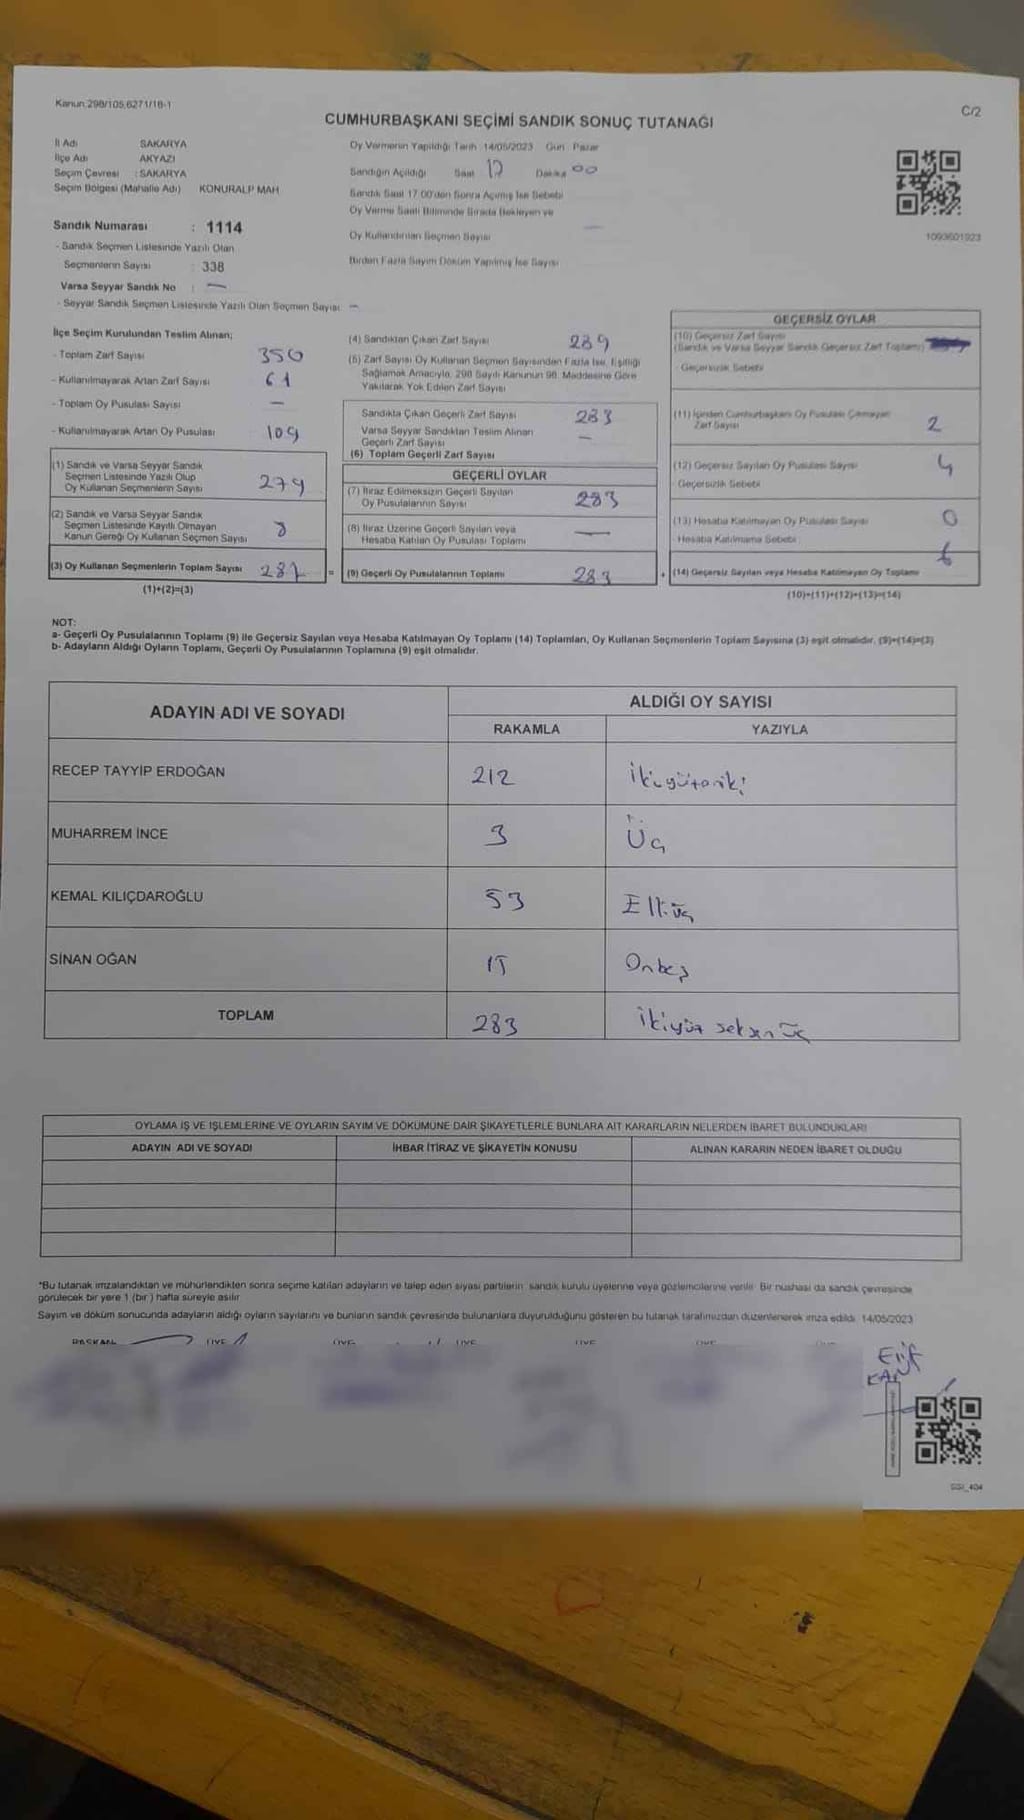 Kanun;298/105,6271/18-1
C/2
CUMHURBAŞKANI SEÇİMİ SANDIK SONUÇ TUTANAĞI
İl Adı SAKARYA
İlçe Adı AKYAZI
Seçim Çevresi : SAKARYA
Seçim Bölgesi (Mahalle Adı) KONURALP MAH
Oy Vermenin Yapıldığı Tarih 14/05/2023 Gün Pazar
Sandığın Açıldığı Saat 17 Dakika 00
Sandık Saat 17:00'den Sonra Açılmış İse Sebebi
Oy Verme Saati Bitiminde Sırada Bekleyen ve
Oy Kullandırılan Seçmen Sayısı —
Birden Fazla Sayım Döküm Yapılmış İse Sayısı
1093601923
Sandık Numarası : 1114
- Sandık Seçmen Listesinde Yazılı Olan
Seçmenlerin Sayısı : 338
Varsa Seyyar Sandık No : —
- Seyyar Sandık Seçmen Listesinde Yazılı Olan Seçmen Sayısı —
İlçe Seçim Kurulundan Teslim Alınan;
- Toplam Zarf Sayısı 350
- Kullanılmayarak Artan Zarf Sayısı 61
- Toplam Oy Pusulası Sayısı —
- Kullanılmayarak Artan Oy Pusulası 109
(1) Sandık ve Varsa Seyyar Sandık
Seçmen Listesinde Yazılı Olup
Oy Kullanan Seçmenlerin Sayısı 279
(2) Sandık ve Varsa Seyyar Sandık
Seçmen Listesinde Kayıtlı Olmayan
Kanun Gereği Oy Kullanan Seçmen Sayısı
(3) Oy Kullanan Seçmenlerin Toplam Sayısı
(1)+(2)=(3)
(4) Sandıktan Çıkan Zarf Sayısı 289
(5) Zarf Sayısı Oy Kullanan Seçmen Sayısından Fazla İse, Eşitliği
Sağlamak Amacıyla, 298 Sayılı Kanunun 98. Maddesine Göre
Yakılarak Yok Edilen Zarf Sayısı
Sandıkta Çıkan Geçerli Zarf Sayısı 283
Varsa Seyyar Sandıktan Teslim Alınan
Geçerli Zarf Sayısı —
(6) Toplam Geçerli Zarf Sayısı
GEÇERLİ OYLAR
(7) İtiraz Edilmeksizin Geçerli Sayılan
Oy Pusulalarının Sayısı 283
(8) İtiraz Üzerine Geçerli Sayılan veya
Hesaba Katılan Oy Pusulası Toplamı —
= (9) Geçerli Oy Pusulalarının Toplamı 283
GEÇERSİZ OYLAR
(10) Geçersiz Zarf Sayısı
(Sandık ve Varsa Seyyar Sandık Geçersiz Zarf Toplamı)
- Geçersizlik Sebebi
(11) İçinden Cumhurbaşkanı Oy Pusulası Çıkmayan
Zarf Sayısı 2
(12) Geçersiz Sayılan Oy Pusulası Sayısı 4
- Geçersizlik Sebebi
(13) Hesaba Katılmayan Oy Pusulası Sayısı 0
- Hesaba Katılmama Sebebi
+ (14) Geçersiz Sayılan veya Hesaba Katılmayan Oy Toplamı 6
(10)+(11)+(12)+(13)=(14)
NOT:
a- Geçerli Oy Pusulalarının Toplamı (9) ile Geçersiz Sayılan veya Hesaba Katılmayan Oy Toplamı (14) Toplamları, Oy Kullanan Seçmenlerin Toplam Sayısına (3) eşit olmalıdır. (9)+(14)=(3)
b- Adayların Aldığı Oyların Toplamı, Geçerli Oy Pusulalarının Toplamına (9) eşit olmalıdır.
ADAYIN ADI VE SOYADI
ALDIĞI OY SAYISI
RAKAMLA YAZIYLA
RECEP TAYYİP ERDOĞAN 212 İkiyüzoniki
MUHARREM İNCE 3 Üç
KEMAL KILIÇDAROĞLU 53 Elliüç
SİNAN OĞAN 15 Onbeş
TOPLAM 283 İkiyüz seksen üç
OYLAMA İŞ VE İŞLEMLERİNE VE OYLARIN SAYIM VE DÖKÜMÜNE DAİR ŞİKAYETLERLE BUNLARA AİT KARARLARIN NELERDEN İBARET BULUNDUKLARI
ADAYIN ADI VE SOYADI İHBAR İTİRAZ VE ŞİKAYETİN KONUSU ALINAN KARARIN NEDEN İBARET OLDUĞU
*Bu tutanak imzalandıktan ve mühürlendikten sonra seçime katılan adayların ve talep eden siyasi partilerin sandık kurulu üyelerine veya gözlemcilerine verilir. Bir nüshası da sandık çevresinde
görülecek bir yere 1 (bir ) hafta süreyle asılır.
Sayım ve döküm sonucunda adayların aldığı oyların sayılarını ve bunların sandık çevresinde bulunanlara duyurulduğunu gösteren bu tutanak tarafımızdan düzenlenerek imza edildi. 14/05/2023
BAŞKAN ÜYE ÜYE ÜYE ÜYE ÜYE
Elif